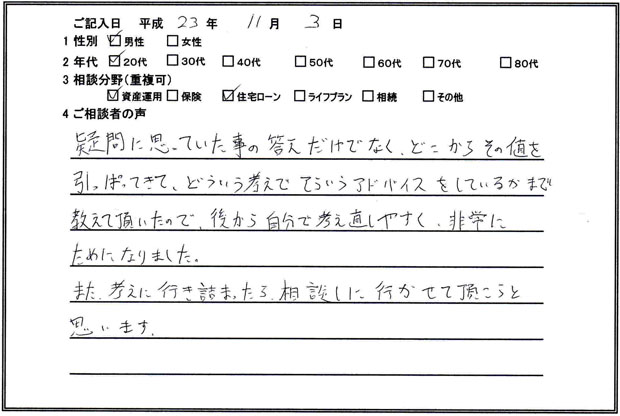 ご記入日 平成 23 年 11 月 3 日
1 性別 ☑男性 □女性
2 年代 ☑20代 □30代 □40代 □50代 □60代 □70代 □80代
3 相談分野(重複可)
☑資産運用 □保険 ☑住宅ローン □ライフプラン □相続 □その他
4 ご相談者の声
疑問に思っていた事の答えだけでなく、どこからその値を
引っぱってきて、どういう考えでそういうアドバイスをしているかまで
教えて頂いたので、後から自分で考え直しやすく、非常に
ためになりました。
また、考えに行き詰まったら、相談しに行かせて頂こうと
思います。